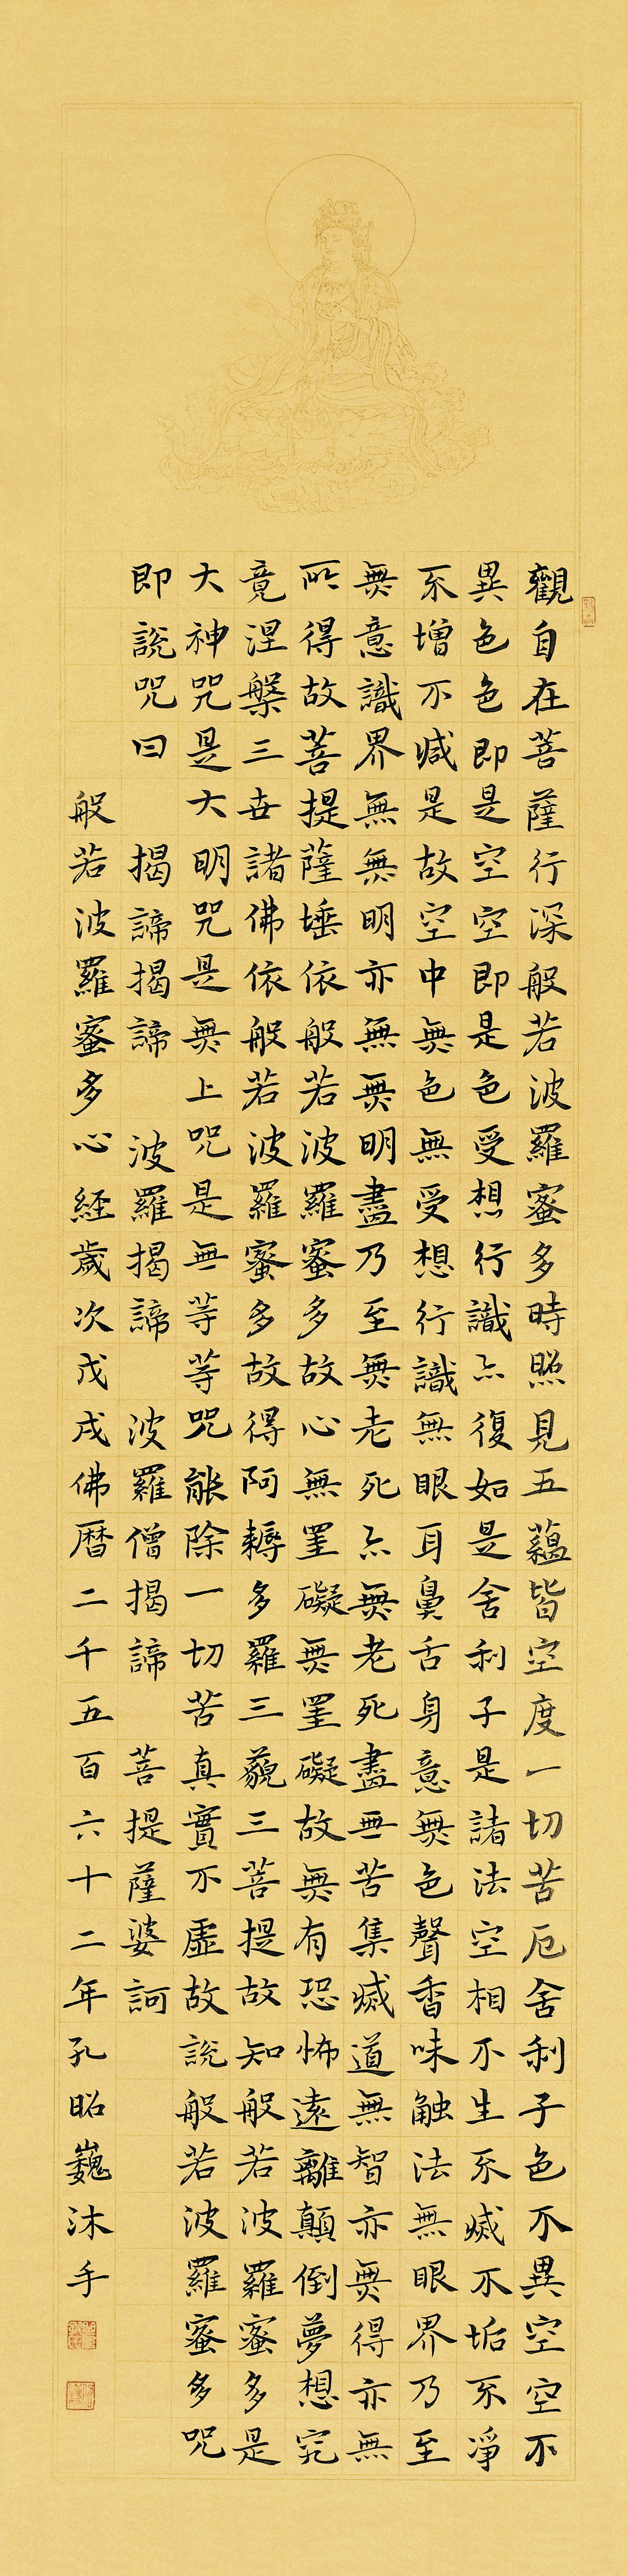 觀自在菩薩行深般若波羅蜜多時照見五蘊皆空度一切苦厄舍利子色不異空空不
異色色即是空空即是色受想行識亦復如是舍利子是諸法空相不生不滅不垢不淨
不增不減是故空中無色無受想行識無眼耳鼻舌身意無色聲香味觸法無眼界乃至
無意識界無無明亦無無明盡乃至無老死亦無老死盡無苦集滅道無智亦無得亦無
所得故菩提薩埵依般若波羅蜜多故心無罣礙無罣礙故無有恐怖遠離顛倒夢想究
竟涅槃三世諸佛依般若波羅蜜多故得阿耨多羅三藐三菩提故知般若波羅蜜多是
大神咒是大明咒是無上咒是無等等咒能除一切苦真實不虛故說般若波羅蜜多咒
即說咒曰 揭諦揭諦 波羅揭諦 波羅僧揭諦 菩提薩婆訶
般若波羅蜜多心経歲次戊戌佛曆二千五百六十二年孔昭巍沐手